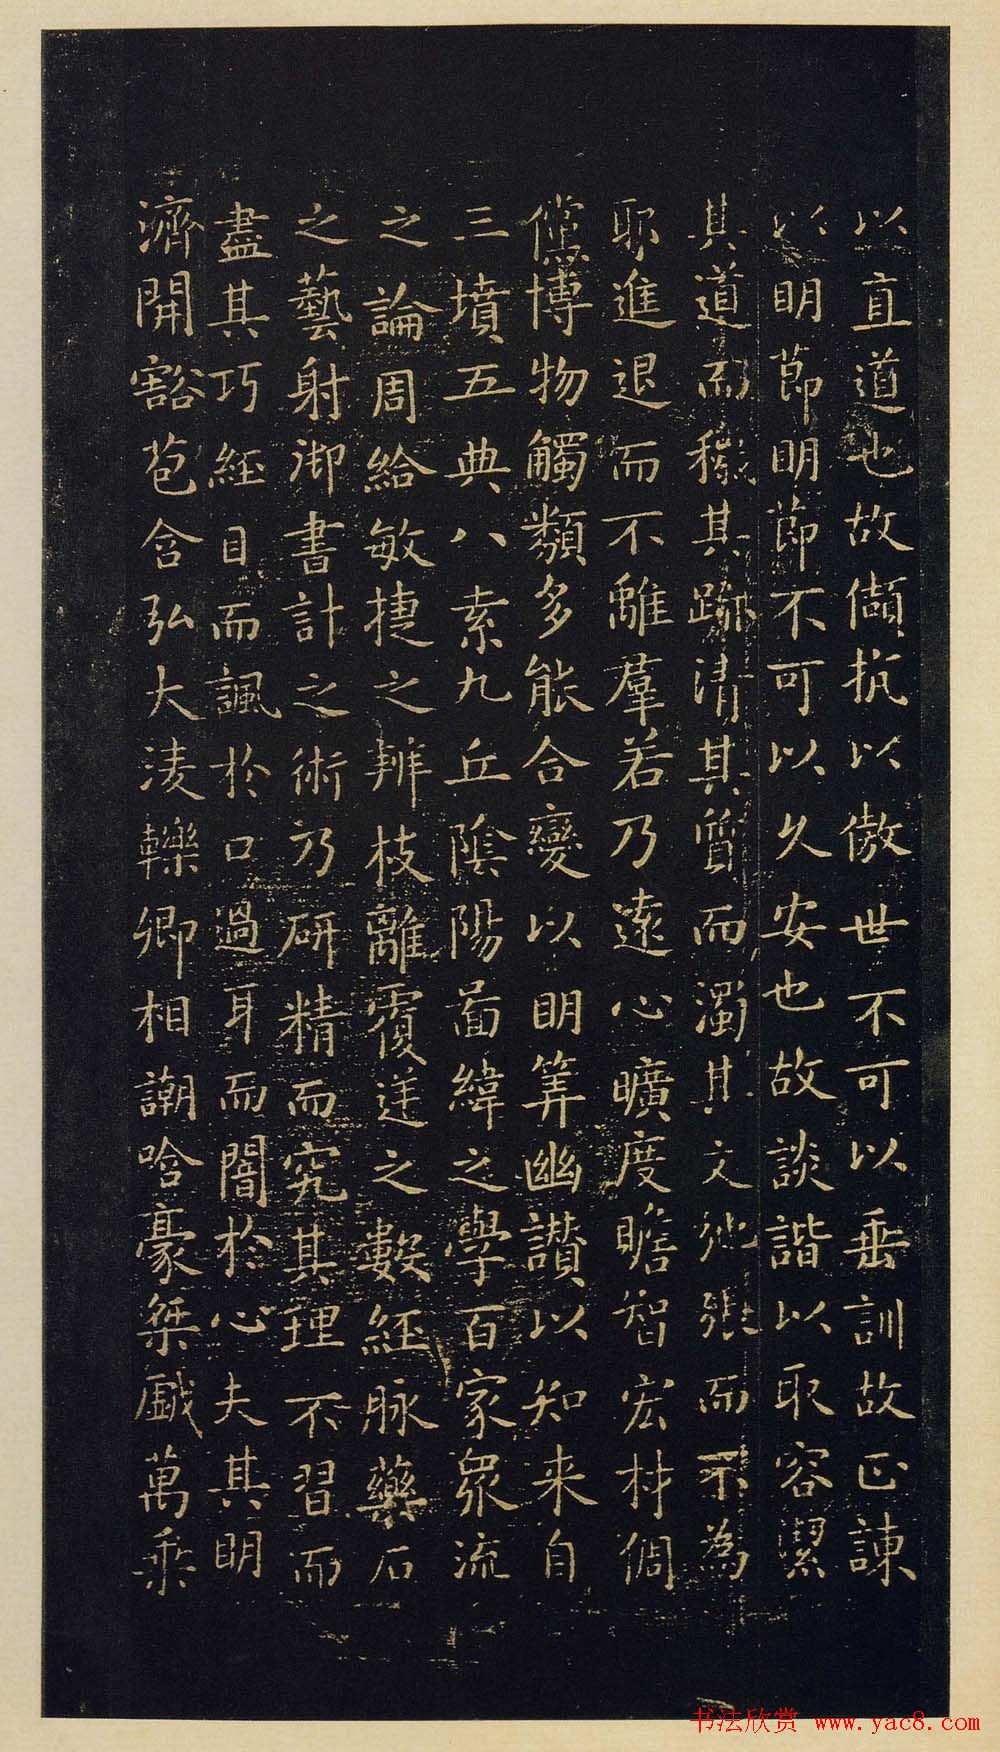 以直道也故傾抗以傲世不可以垂訓故正諫
以明節明節不可以久安也故談諧以取容潔
其道而穢其跡清其質而濁其文弛張而不為
耶進退而不離羣若乃遠心曠度瞻智宏材倜
儻博物觸類多能合變以明筭幽讃以知来自
三墳五典八索九丘陰陽啚緯之學百家衆流
之論周給敏捷之辨枝離覆逆之數經脉藥石
之藝射御書計之術乃研精而究其理不習而
盡其巧經目而諷於口過耳而闇於心夫其明
濟開豁苞含弘大淩轢卿相謿哈豪桀戲萬乘
书法欣赏 www.yac8.com